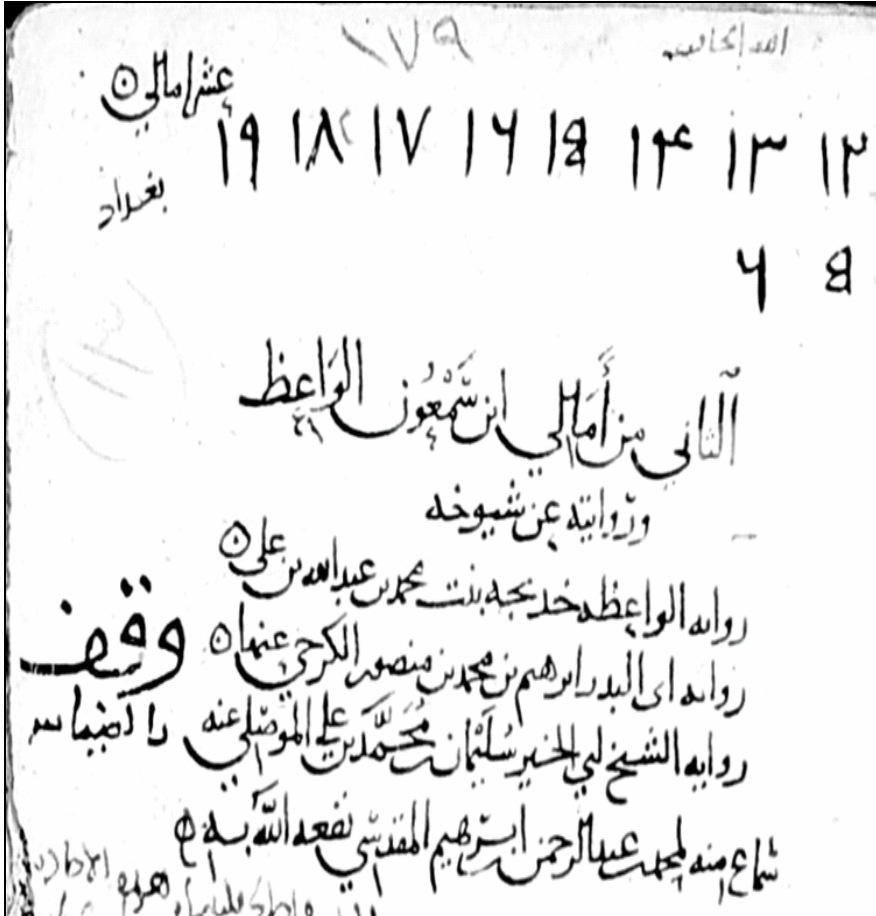 ١٧٩
عشر امالي
١٢ ١٣ ١٤ ١٥ ١٦ ١٧ ١٨ ١٩
بغداد
٥ ٦
الثاني من أمالي ابن سمعون الواعظ
وروايته عن شيوخه
روايه الواعظه خديجه بنت محمد بن عبد الله بن علي
روايه ابي البدر ابرهيم بن محمد بن منصور الكرخي عنها
وقف
روايه الشيخ ابي الخير سليمان بن محمد بن علي الموصلي عنه
بالضيائيه
سماع منه لمحمد بن عبد الرحمن بن ابرهيم المقدسي نفعه الله به